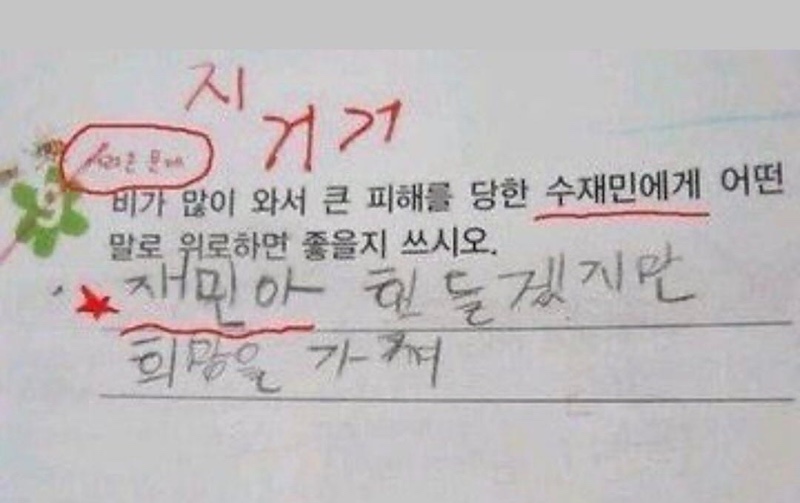 지
거거
비가 많이 와서 큰 피해를 당한 수재민에게 어떤
말로 위로하면 좋을지 쓰시오.
재민아 힌들겠지만
희망을 가져